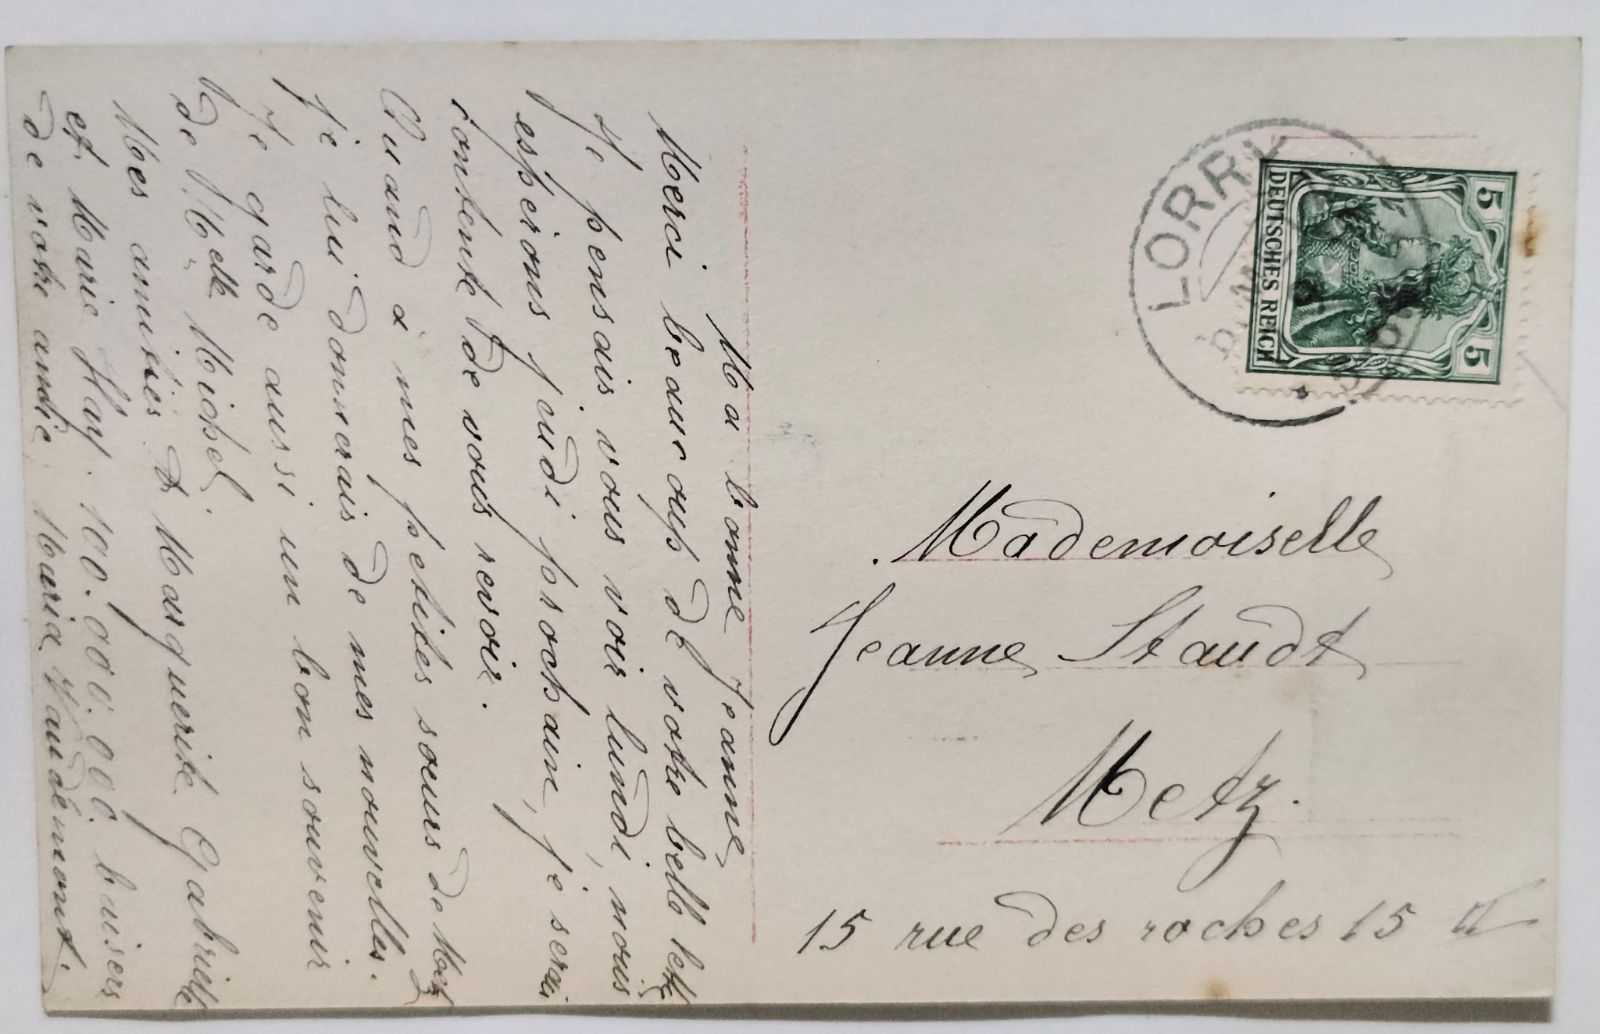 Ma bonne Jeanne,
Merci beaucoup de votre belle lettre
Je pensais vous voir lundi, nous
espérons jeudi prochain, je serai
contente de vous revoir.
Quand à mes petites sœurs de Metz
je lui donnerais de mes nouvelles.
Je garde aussi un bon souvenir
de Melle Michel.
Mes amitiés à Marguerite Gabrielle
et Marie Hay. 100.000.000. baisers
de votre amie Maria Vaudémont.
LORRY
DEUTSCHES REICH
5
5
Mademoiselle
Jeanne Staudt
Metz.
15 rue des roches 15 II